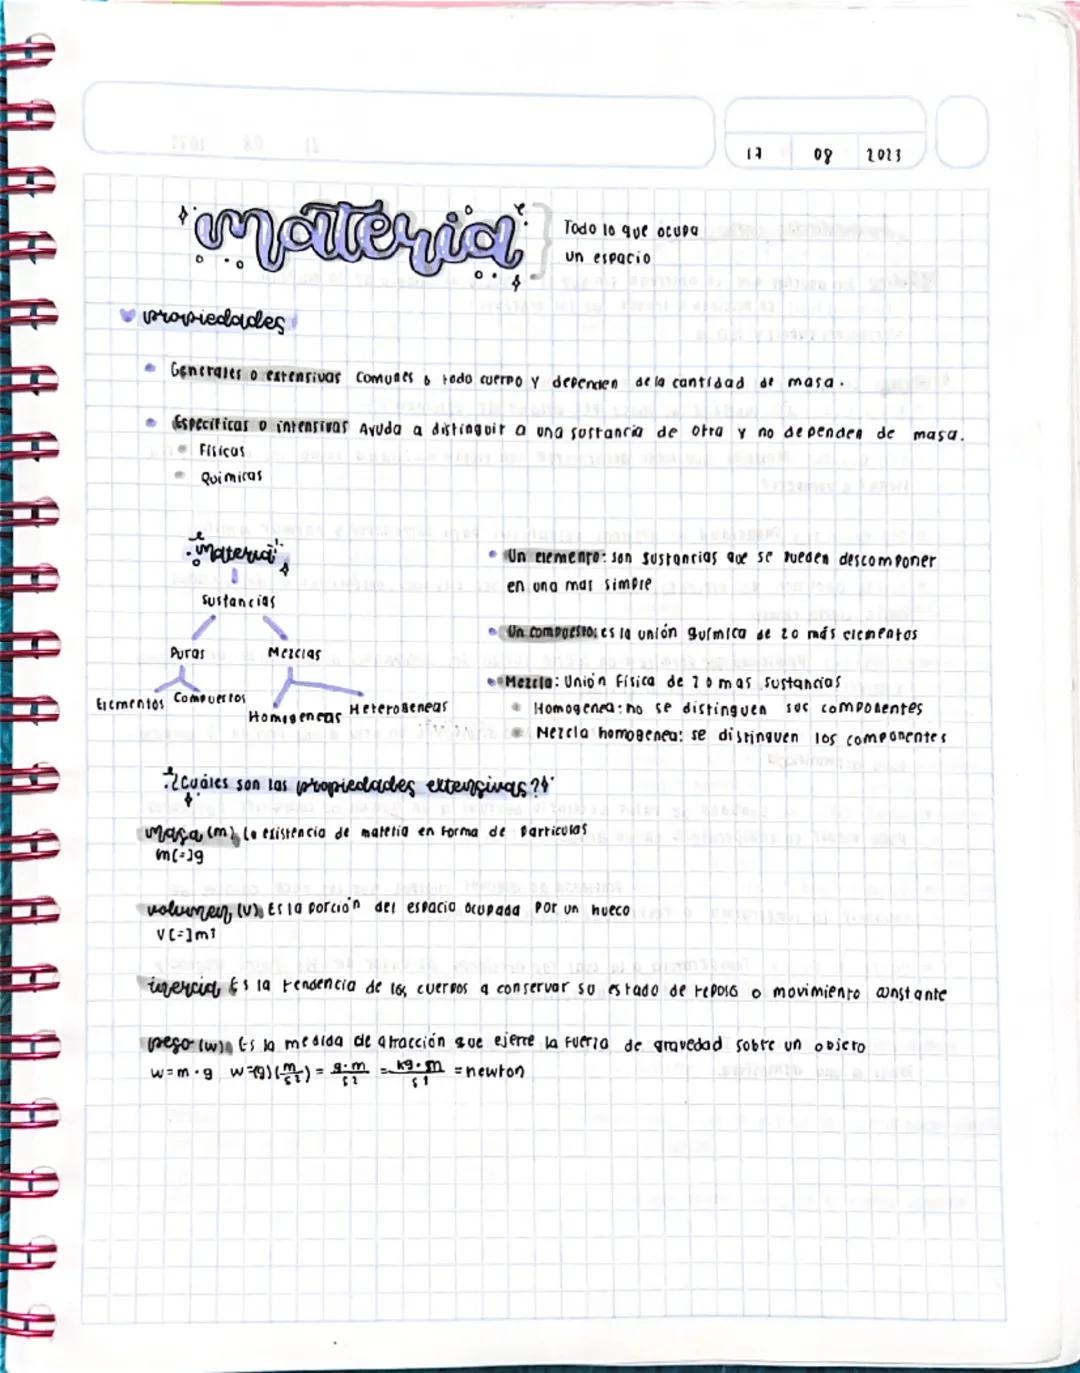 17 08 2023
materia
Todo lo que ocupa
un espacio
propiedades
Generales o extensivas Comunes a todo cuerpo y dependen de la cantidad de masa.
Especificas o intensivas Ayuda a distinguir a una sustancia de otra y no dependen de masa.
Físicas
Quimicas
materia
Sustancias
Puras Mezclas
Elementos Compuestos
Homogeneas Heterogeneas
Un elemento: son sustancias que se pueden descomponer
en una mas simple
Un compuesto: es la unión química de 2 o más elementos
Mezcla: Unión Física de 2 o mas sustancias
Homogenea: no se distinguen sus componentes
Mezcla homogenea: se distinguen los componentes
¿Cuáles son las propiedades extensivas?
masa (m) La existencia de materia en forma de particulas
m[=]g
volumen (V) Es la porción del espacio ocupada por un hueco
V[=]m³
inercia Es la tendencia de los cuerpos a conservar su estado de reposo o movimiento constante
peso (w) Es la medida de atracción que ejerce la fuerza de gravedad sobre un objeto
w=m·g w=(g)(m/s²) = g·m/s² = kg·m/s² = newton